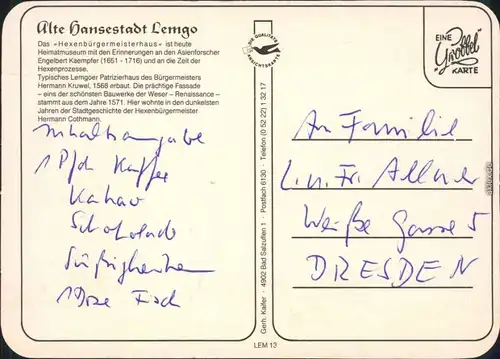 Alte Hansestadt Lemgo
Das »Hexenbürgermeisterhaus« ist heute
Heimatmuseum mit den Erinnerungen an den Asienforscher
Engelbert Kaempfer (1651 - 1716) und an die Zeit der
Hexenprozesse.
Typisches Lemgoer Patrizierhaus des Bürgermeisters
Hermann Kruwel, 1568 erbaut. Die prächtige Fassade
– eins der schönsten Bauwerke der Weser - Renaissance -
stammt aus dem Jahre 1571. Hier wohnte in den dunkelsten
Jahren der Stadtgeschichte der Hexenbürgermeister
Hermann Cothmann.
Inhaltsangabe
1 Pfd. Kaffee
Kakao
Schokolade
Süßigkeiten
1 Dose Fisch
DIE QUALITÄTS
ANSICHTSKARTE
Gerh. Kaifer · 4902 Bad Salzuflen 1 · Postfach 6130 · Telefon (0 52 22) 1 32 17
EINE
Groppel
KARTE
An Familie
L. u. Fr. Allner
Weiße Gasse 5
DRESDEN
LEM 13